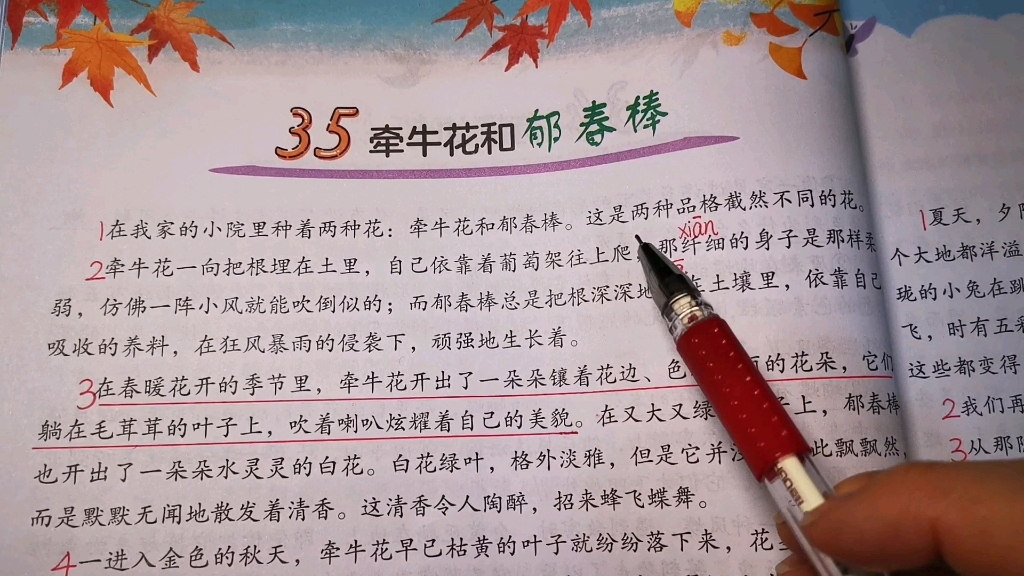 35 牵牛花和郁春棒
1在我家的小院里种着两种花：牵牛花和郁春棒。这是两种品格截然不同的花。
xiān
2牵牛花一向把根埋在土里，自己依靠着葡萄架往上爬，那纤细的身子是那样柔
弱，仿佛一阵小风就能吹倒似的；而郁春棒总是把根深深地 土壤里，依靠自己
吸收的养料，在狂风暴雨的侵袭下，顽强地生长着。
3在春暖花开的季节里，牵牛花开出了一朵朵镶着花边、色 的花朵，它们
躺在毛茸茸的叶子上，吹着喇叭炫耀着自己的美貌。在又大又绿 上，郁春棒
也开出了一朵朵水灵灵的白花。白花绿叶，格外淡雅，但是它并 此飘飘然，
而是默默无闻地散发着清香。这清香令人陶醉，招来蜂飞蝶舞。
4一进入金色的秋天，牵牛花早已枯黄的叶子就纷纷落下来，花
1夏天，夕
个大地都洋溢
珑的小兔在跳
飞，时有五彩
这些都变得
2我们再
3从那